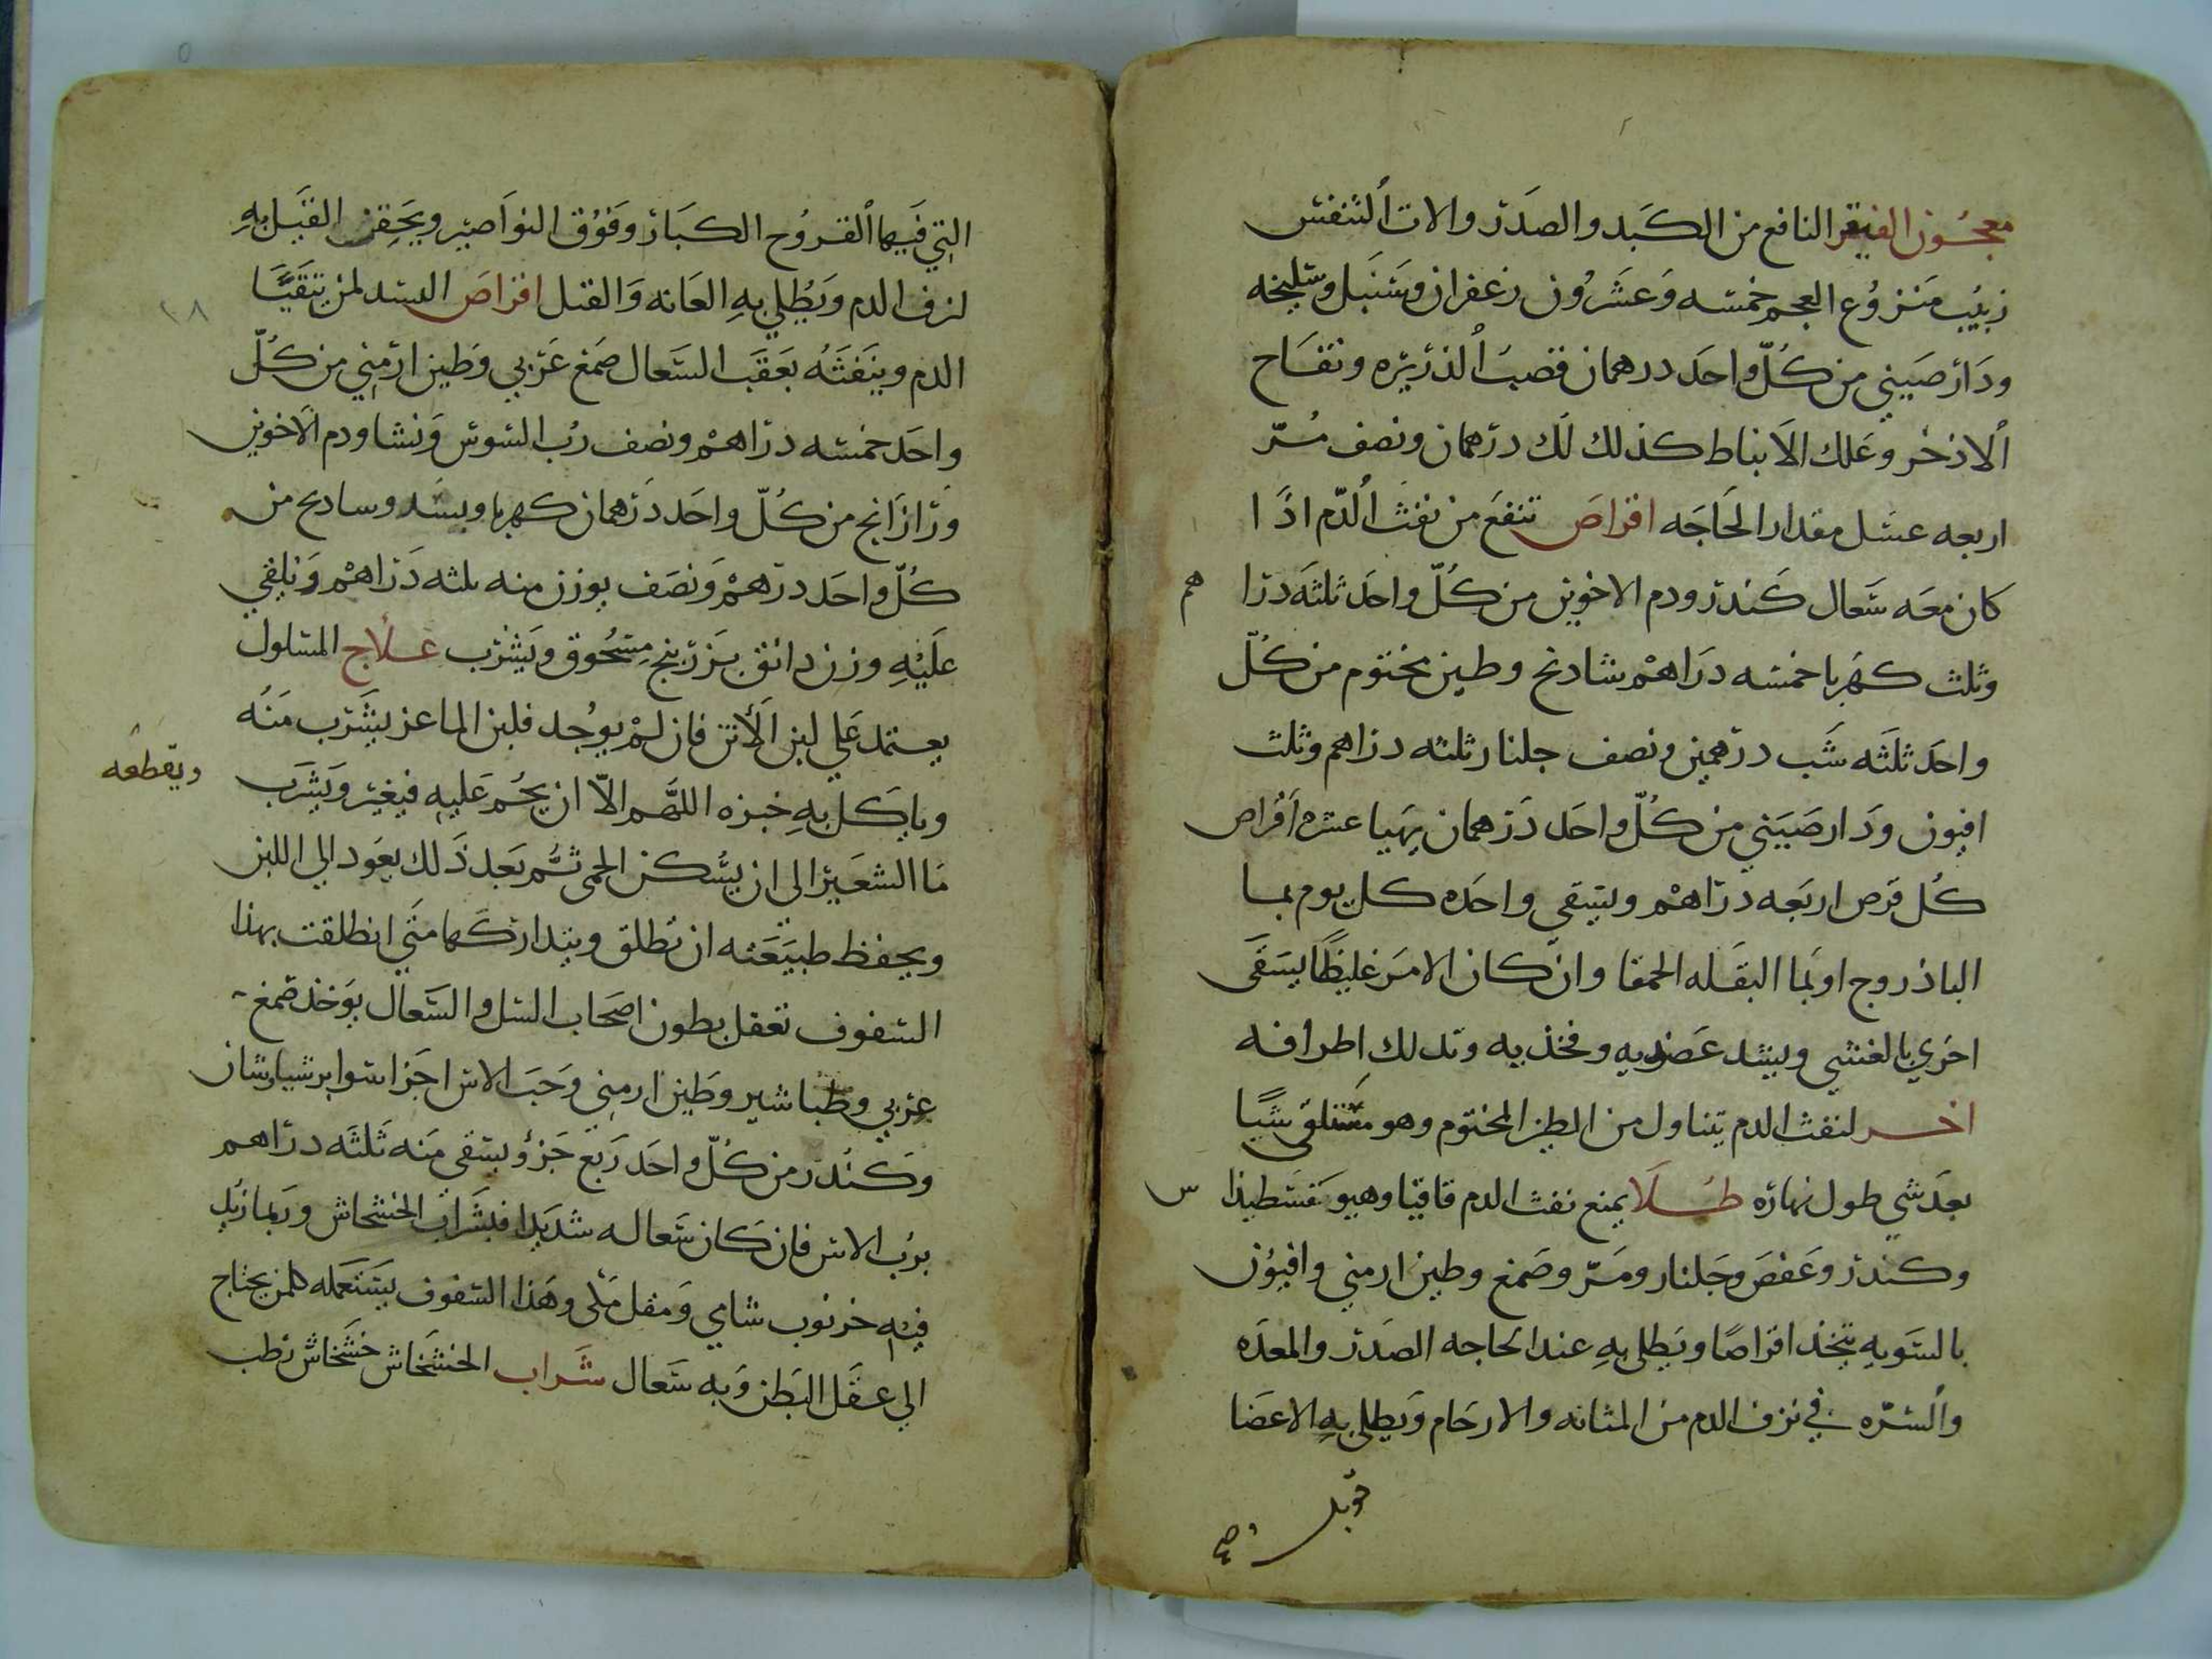 معجون الفيقر النافع من الكبد والصدر والات التنفس
زبيب منزوع العجم خمسه وعشرون زعفران وسنبل وسليخه
ودارصيني من كل واحد درهمان قصب الذريره وتفاح
الاذخر وعلك الانباط كذلك لك درهمان ونصف مر
اربعه عسل مقدار الحاجه اقراص تنفع من نفث الدم اذا
كان معه سعال كندر ودم الاخوين من كل واحد ثلثه درا هم
وثلث كهربا خمسه دراهم شادنج وطين مختوم من كل
واحد ثلثه شب درهمين ونصف جلنار ثلثه دراهم وثلث
افيون ودارصيني من كل واحد درهمان يهيا عشره اقراص
كل قرص اربعه دراهم ويسقى واحده كل يوم بما
الباذروج او بما البقله الحمقا وان كان الامر غليظا يسقى
اخرى بالعشي ويشد عضديه وفخذيه وتدلك اطرافه
اخر لنفث الدم يتناول من الطين المختوم وهو مستلقى شيا
بعد شي طول نهاره طلا يمنع نفث الدم قاقيا وهيوفسطيذا س
وكندر وعفص وجلنار ومر وصمغ وطين ارمني وافيون
بالسويه يتخذ اقراصا ويطلى به عند الحاجه الصدر والمعده
والسره في نزف الدم من المثانه والارحام ويطلى به الاعضا
قوبل وصح
التي فيها القروح الكبار وفوق النواصير ويحقن القبل به
لنزف الدم ويطلي به العانه والقبل اقراص البسد لمن يتقيا
الدم وينفثه بعقب السعال صمغ عربي وطين ارمني من كل
واحد خمسه دراهم ونصف رب السوس ونشا ودم الاخوين
ورازانج من كل واحد درهمان كهربا وبسد وسادج من
كل واحد درهم ونصف يوزن منه ثلثه دراهم ويلقي
عليه وزن دانق بزر بنج مسحوق ويشرب علاج المسلول
يعتمد على لبن الاتن فان لم يوجد فلبن الماعز يشرب منه
وياكل به خبزه اللهم الا ان يحم عليه فيغير ويشرب
ويقطعه
ما الشعير الى ان يسكن الحمى ثم بعد ذلك يعود الى اللبن
ويحفظ طبيعته ان تطلق ويتداركها متى انطلقت بهذا
السفوف تعقل بطون اصحاب السل والسعال يوخذ صمغ
عربي وطباشير وطين ارمني وحب الاس اجزا سوا برشيارشان
وكندر من كل واحد ربع جزؤ يسقى منه ثلثه دراهم
برب الاس فان كان سعاله شديدا فبشراب الخشخاش وربما زيد
فيه خرنوب شامي ومقل مكى وهذا السفوف يستعمله كلمن يحتاج
الي عقل البطن وبه سعال شراب الخشخاش خشخاش رطب